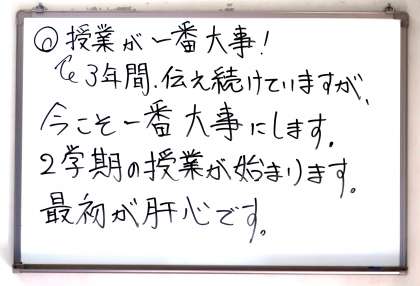 ◎授業が一番大事!
で3年間、伝え続けていますが、
今こそ一番大事にします。
2学期の授業が始まります。
最初が肝心です。